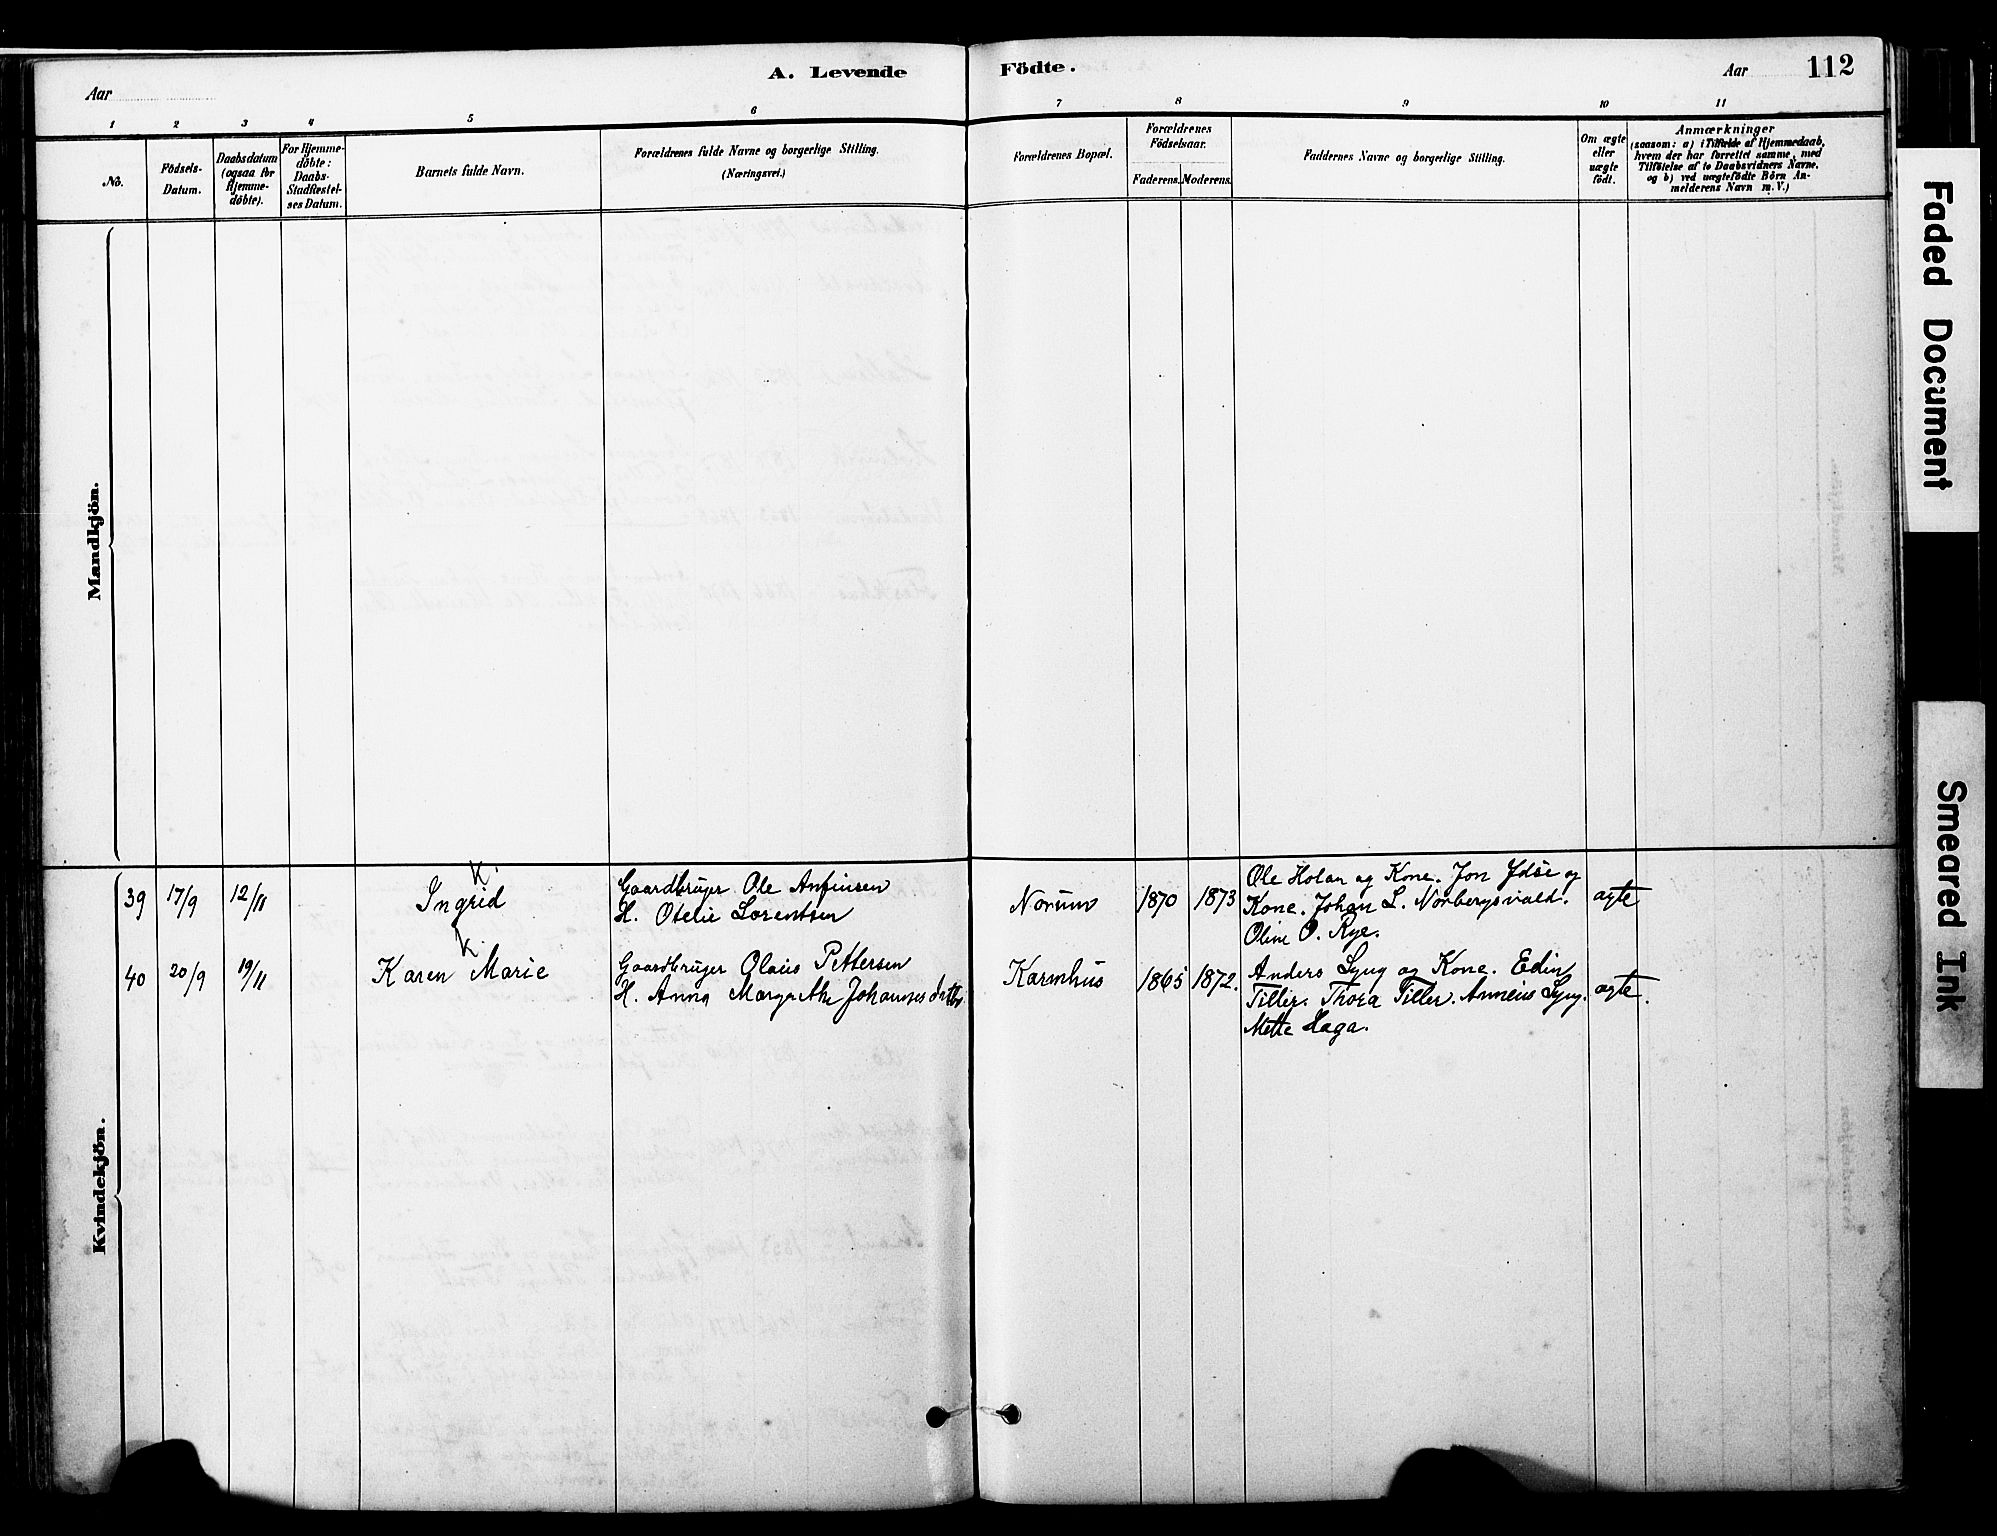 A. Levende Födte.
Aar
Aar 112
1 2 3 4 5 6 7 8 9 10 11
No.
Födsels-
Datum.
Daabsdatum
(ogsaa for
Hjemme-
døbte).
For Hjemme-
døbte:
Daabs-
Stadfæstel-
ses Datum.
Barnets fulde Navn.
Forældrenes fulde Navne og borgerlige Stilling.
(Næringsvei.)
Forældrenes Bopæl.
Forældrenes
Födselsaar.
Faderens. Moderens.
Faddernes Navne og borgerlige Stilling.
Om ægte
eller
uægte
födt.
Anmærkninger
(saasom: a) i Tilfælde af Hjemmedaab,
hvem der har forrettet samme, med
Tilföielse af to Daabsvidners Navne.
og b) ved uægtefödte Börn An-
melderens Navn m.V.)
Mandkjön.
Kvindekjön.
39 17/9 12/11
K.
Ingrid
Gaardbruger Ole Anfinsen
H. Otelie Lorentsen
Norum 1870 1873
Ole Holan og Kone. Jon Ydse og
Kone. Johan L. Norbergsvald.
Oline O. Rye.
ægte
40 20/9 19/11
K.
Karen Marie
Gaardbruger Olaus Pettersen
H. Anna Margrethe Johannesdatter
Karmhus 1865 1872.
Anders Lyng og Kone. Edin
Tiller. Thora Tiller. Anneus Lyng.
Mette Haga.
ægte.
Faded Document
Smeared Ink